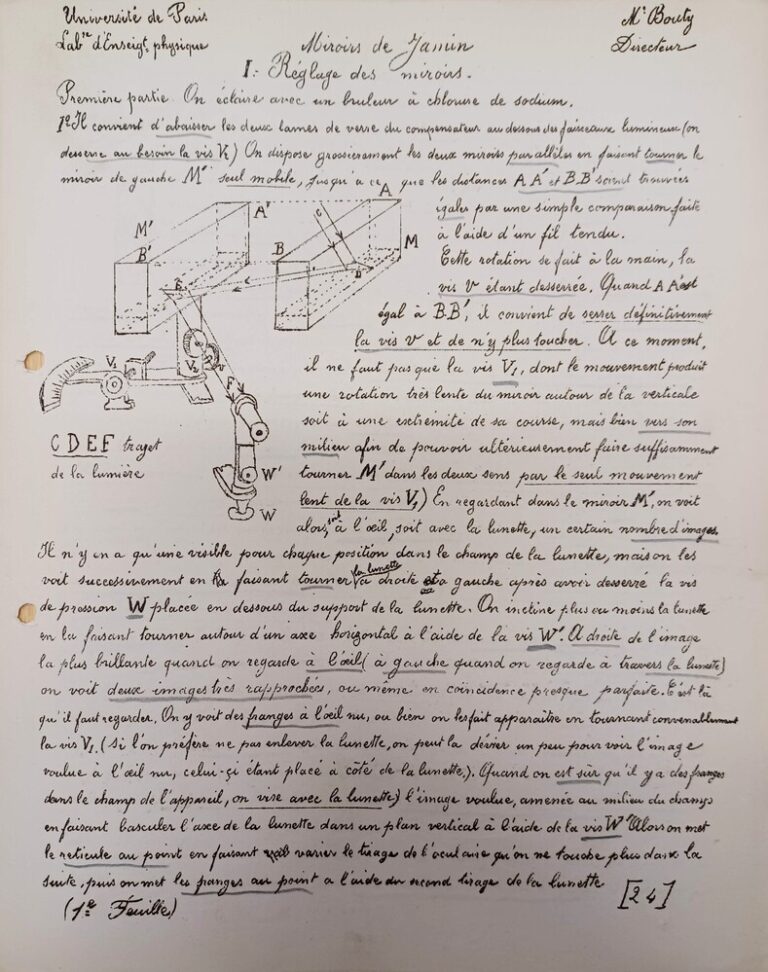 Université de Paris
Labre d'Enseigt. physique
Mr Bouty
Directeur
Miroirs de Jamin
I. Réglage des miroirs.
Première partie. On éclaire avec un bruleur à chlorure de sodium.
1º Il convient d'abaisser les deux lames de verre du compensateur au dessous des faisceaux lumineux (on
desserre au besoin la vis V2) On dispose grossièrement les deux miroirs parallèles en faisant tourner le
miroir de gauche M' seul mobile, jusqu'à ce que les distances A A' et B B' soient trouvées
égales par une simple comparaison faite
à l'aide d'un fil tendu.
Cette rotation se fait à la main, la
vis v étant desserrée. Quand A A' est
égal à B.B', il convient de serrer définitivement
la vis v et de n'y plus toucher. A ce moment,
il ne faut pas que la vis V1, dont le mouvement produit
une rotation très lente du miroir autour de la verticale
soit à une extrémité de sa course, mais bien vers son
milieu afin de pouvoir ultérieurement faire suffisamment
tourner M' dans les deux sens par le seul mouvement
lent de la vis V1) En regardant dans le miroir M', on voit
alors, soit à l'œil, soit avec la lunette, un certain nombre d'images.
A
A'
M'
B'
B
C
M
D
E
V1
V2
v
F
W'
W
C D E F trajet
de la lumière
Il n'y en a qu'une visible pour chaque position dans le champ de la lunette, mais on les
voit successivement en faisant tourner la lunette à droite et à gauche après avoir desserré la vis
de pression W placée en dessous du support de la lunette. On incline plus ou moins la lunette
en la faisant tourner autour d'un axe horizontal à l'aide de la vis W'. A droite de l'image
la plus brillante quand on regarde à l'œil (à gauche quand on regarde à travers la lunette)
on voit deux images très rapprochées, ou même en coïncidence presque parfaite. C'est là
qu'il faut regarder. On y voit des franges à l'œil nu, ou bien on les fait apparaître en tournant convenablement
la vis V1. (si l'on préfère ne pas enlever la lunette, on peut la dévier un peu pour voir l'image
voulue à l'œil nu, celui-çi étant placé à côté de la lunette.). Quand on est sûr qu'il y a des franges
dans le champ de l'appareil, on vise avec la lunette) l'image voulue, amenée au milieu du champ
en faisant basculer l'axe de la lunette dans un plan vertical à l'aide de la vis W' Alors on met
le réticule au point en faisant varier le tirage de l'oculaire qu'on ne touche plus dans la
suite, puis on met les franges au point a l'aide du second tirage de la lunette
[24]
(1re Feuille)